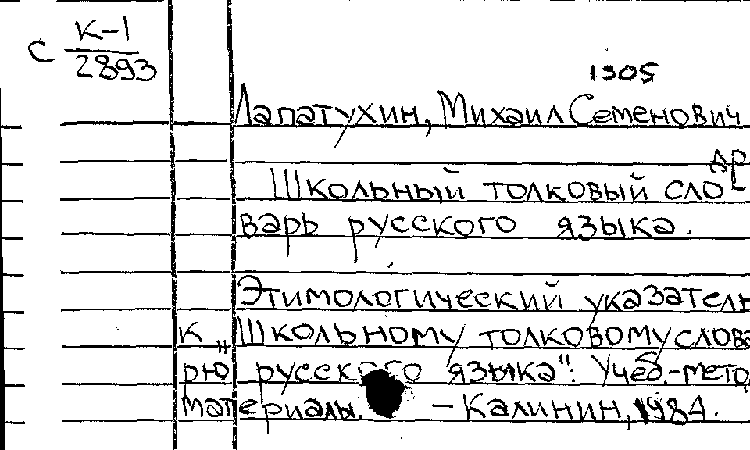 К-1
С
2893
1905
Лапатухин, Михаил Семенович
др
Школьный толковый сло-
варь русского языка.
Этимологический указатель
к „Школьному толковому слова
рю русского языка": Учеб.-метод
материалы. - Калинин, 1984.